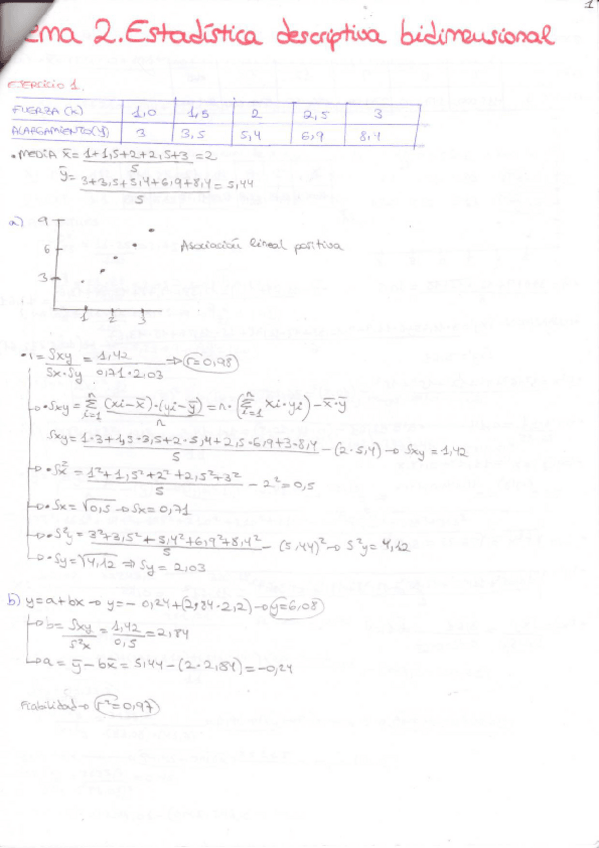 1
ema 2. Estadística descriptiva bidimensional
EJERCICIO 1.
FUERZA (X) 1,0 1,5 2 2,5 3
ALARGAMIENTO (Y) 3 3,5 5,4 6,9 8,4
• MEDIA x̄ = 1+1,5+2+2,5+3 / 5 = 2
ȳ = 3+3,5+5,4+6,9+8,4 / 5 = 5,44
a) 9
6
3
1 2 3
Asociación lineal positiva
• r = Sxy / Sx·Sy = 1,42 / 0,71·2,03 → r=0,98
→ • Sxy = Σ i=1 n (xi-x̄)·(yi-ȳ) / n = n·(Σ i=1 n xi·yi) - x̄·ȳ
Sxy = 1·3+1,5·3,5+2·5,4+2,5·6,9+3·8,4 / 5 - (2·5,4) → Sxy = 1,42
→ • Sx² = 1²+1,5²+2²+2,5²+3² / 5 - 2² = 0,5
→ • Sx = √0,5 → Sx = 0,71
→ • S²y = 3²+3,5²+5,4²+6,9²+8,4² / 5 - (5,44)² → S²y = 4,12
→ • Sy = √4,12 ⇒ Sy = 2,03
b) y = a+bx → y = - 0,24+(2,84·2,2) → y=6,08
→ b = Sxy / S²x = 1,42 / 0,5 = 2,84
→ a = ȳ - bx̄ = 5,44 - (2·2,84) = -0,24
Fiabilidad → r²=0,97